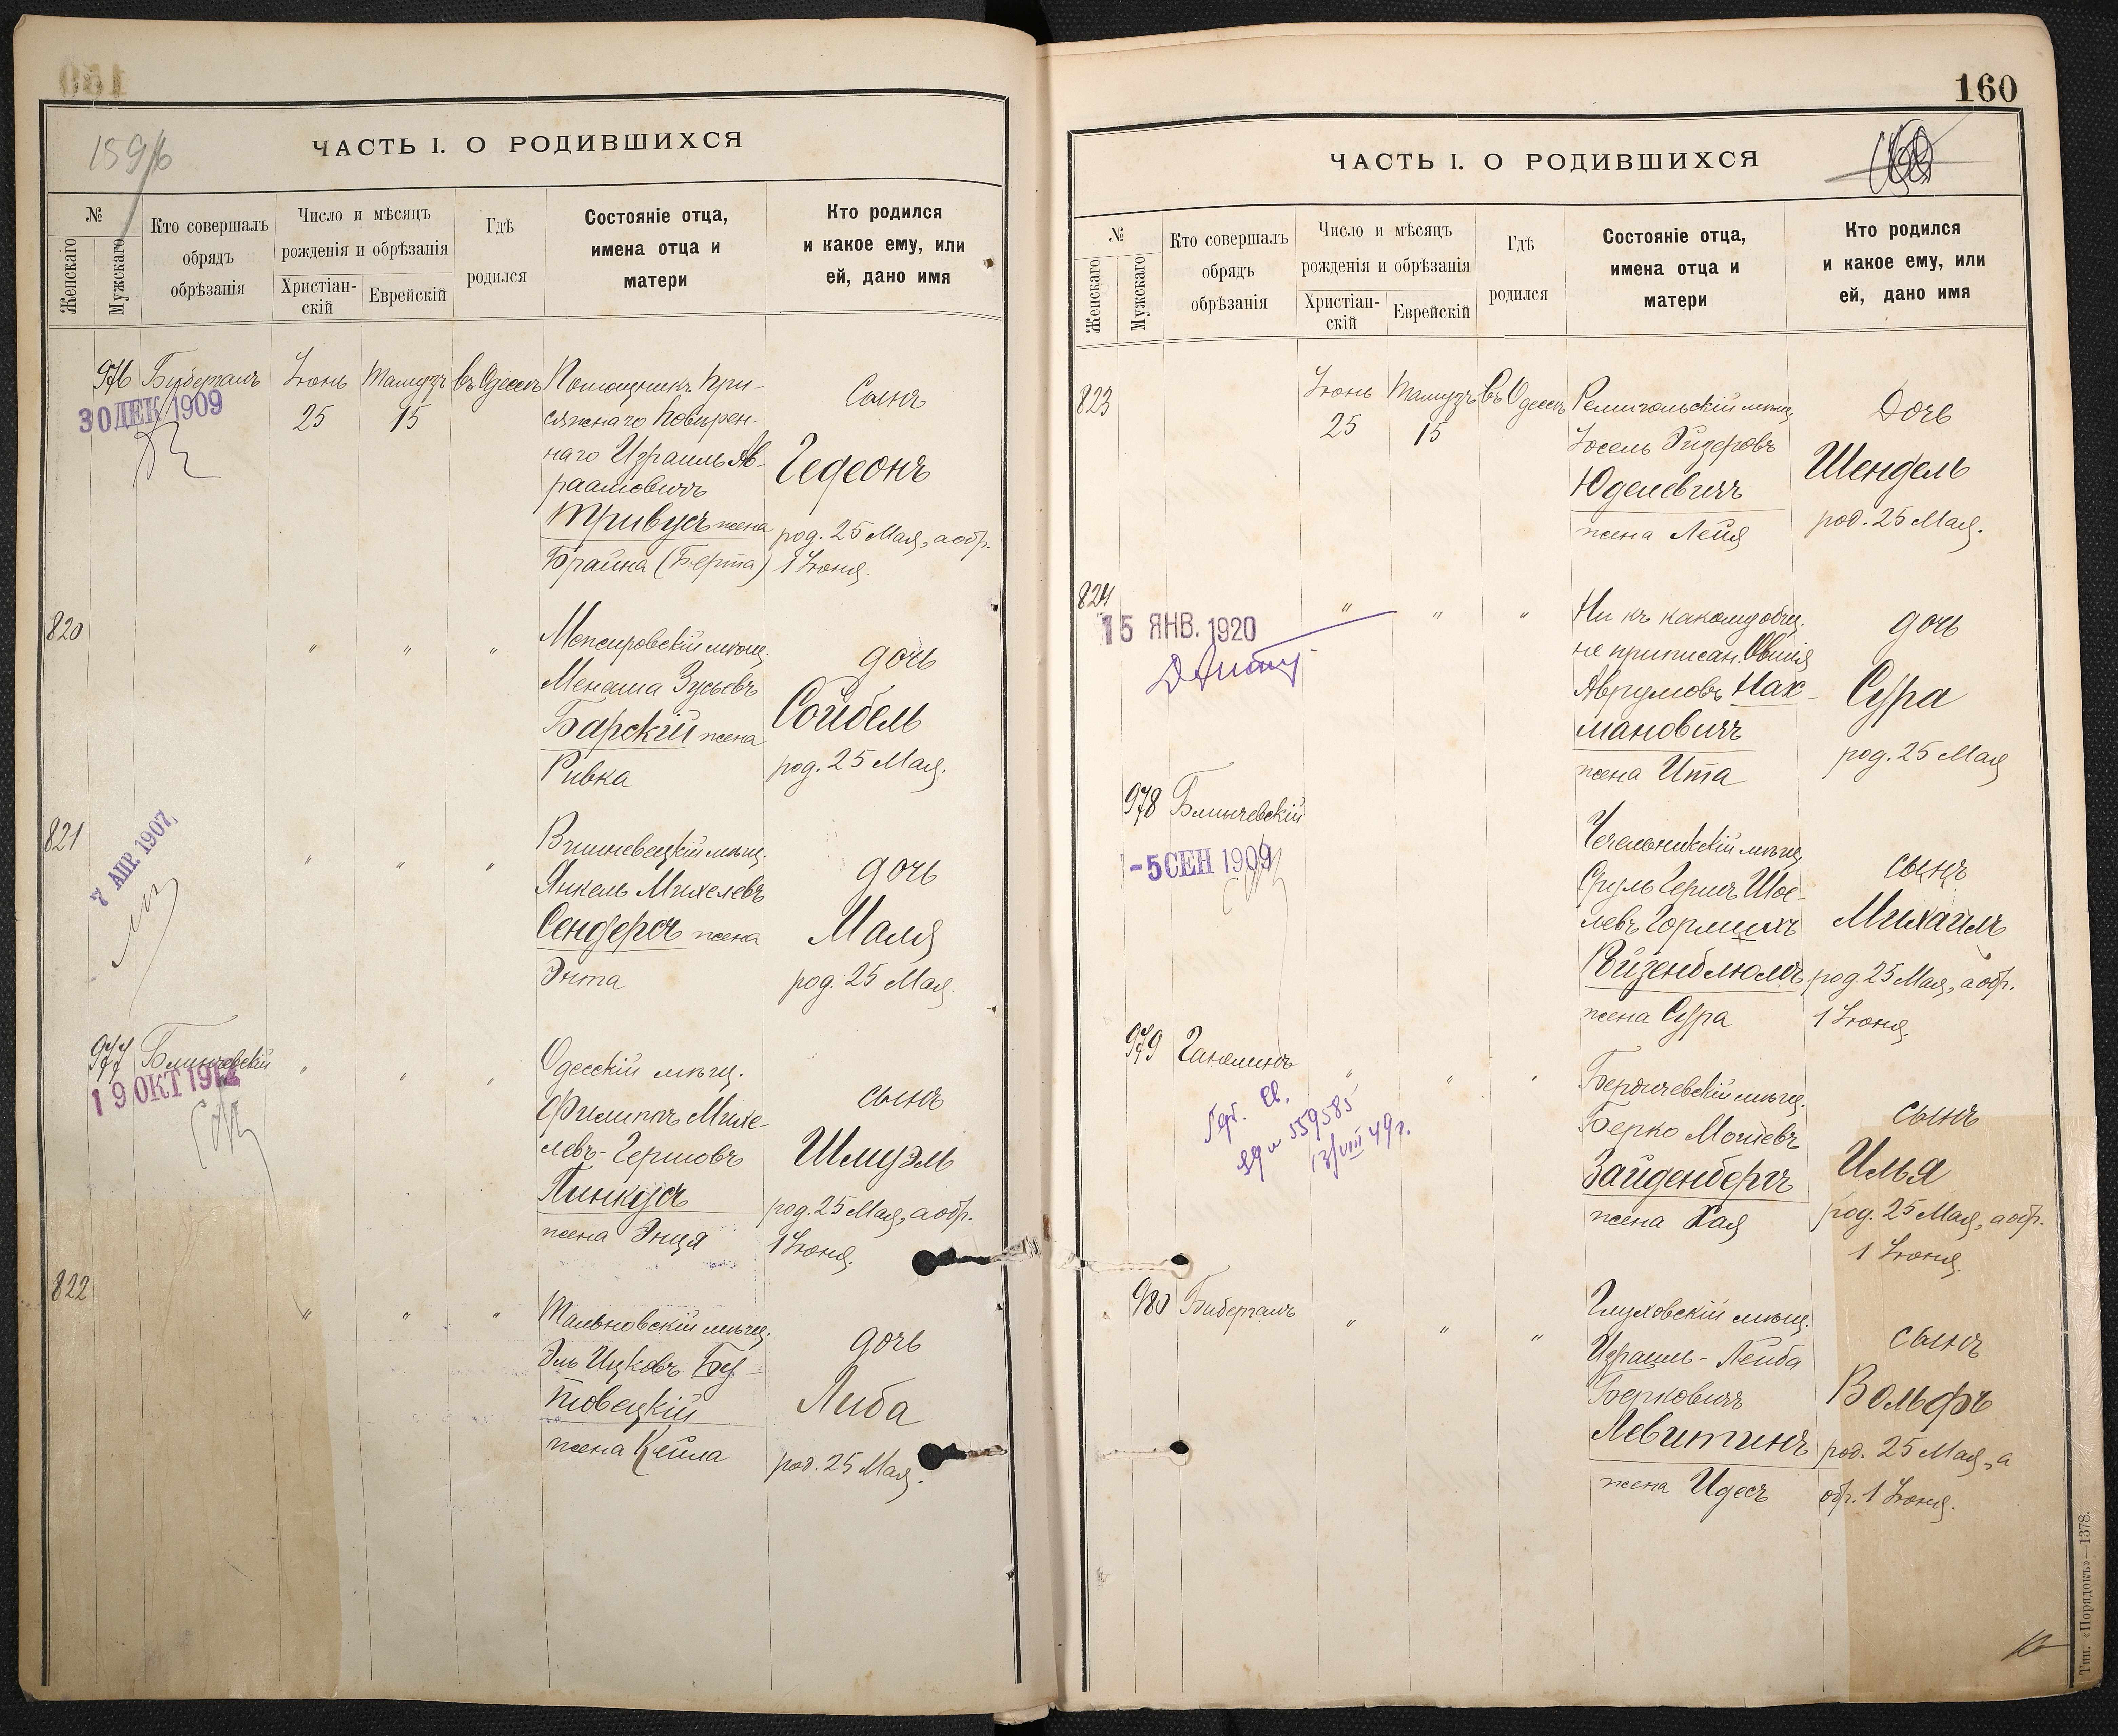 159/б
ЧАСТЬ I. О РОДИВШИХСЯ
№
Женскаго
Мужскаго
Кто совершалъ
обрядъ
обрѣзанія
Число и мѣсяцъ
рожденія и обрѣзанія
Христіан-
скій
Еврейскій
Гдѣ
родился
Состояніе отца,
имена отца и
матери
Кто родился
и какое ему, или
ей, дано имя
976
Бибергалъ
30 ДЕК 1909
Іюнь
25
Тамузъ
15
въ Одессѣ
Помощникъ при-
сяжнаго повѣрен-
наго Израиль Ав-
раамовичъ
Тривусъ жена
Брайна (Берта)
Сынъ
Гедеонъ
род. 25 Мая, а обр.
1 Іюня.
820
" " "
мѣщ.
Менаша Зусьевъ
Барскій жена
Ривка
дочь
Сойбель
род. 25 Мая.
821
7 АПР. 1907
" " "
Вишневецкій мѣщ.
Янкель Михелевъ
Сендеръ жена
Энта
дочь
Маля
род. 25 Мая.
977
Блинчевскій
" " "
Одесскій мѣщ.
Филиппъ Михе-
левъ-Гершовъ
Пинкусъ
жена Энця
сынъ
Шмуэль
род. 25 Мая, а обр.
1 Іюня.
822
" " "
Тальновскій мѣщ.
Эль Ицковъ
жена Кейла
дочь
Либа
род. 25 Мая.
160
ЧАСТЬ I. О РОДИВШИХСЯ
№
Женскаго
Мужскаго
Кто совершалъ
обрядъ
обрѣзанія
Число и мѣсяцъ
рожденія и обрѣзанія
Христіан-
скій
Еврейскій
Гдѣ
родился
Состояніе отца,
имена отца и
матери
Кто родился
и какое ему, или
ей, дано имя
823
Іюнь
25
Тамузъ
15
въ Одессѣ
Ремигольскій мѣщ.
Іосель Эйзеровъ
Юделевичъ
жена Лейя
Дочь
Шендель
род. 25 Мая.
824
15 ЯНВ. 1920
" " "
Ни къ какому общ.
не приписан. Овшія
Аврумовъ Нах-
мановичъ
жена Ита
дочь
Сура
род. 25 Мая
978
Блинчевскій
-5 СЕН 1909
Чечельникскій мѣщ.
Сруль Гершъ Шое-
левъ
Вейзенблюмъ
жена Сура
сынъ
Михаилъ
род. 25 Мая, а обр.
1 Іюня.
979
" " "
559585
13/VIII 49 г.
Бердичевскій мѣщ.
Берко Мошевъ
Зайденбергъ
жена Хая
сынъ
Илья
род. 25 Мая, а обр.
1 Іюня.
980
Бибергалъ
" " "
Глуховскій мѣщ.
Израиль-Лейба
Берковичъ
Левитинъ
жена Идесъ
сынъ
Вольфъ
род. 25 Мая, а
обр. 1 Іюня.
Тип. «Порядокъ»—1378.